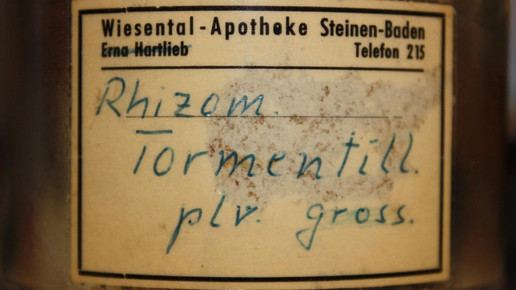 Wiesental-Apotheke Steinen-Baden
Erna Hartlieb Telefon 215
Rhizom.
Tormentill.
plv. gross.